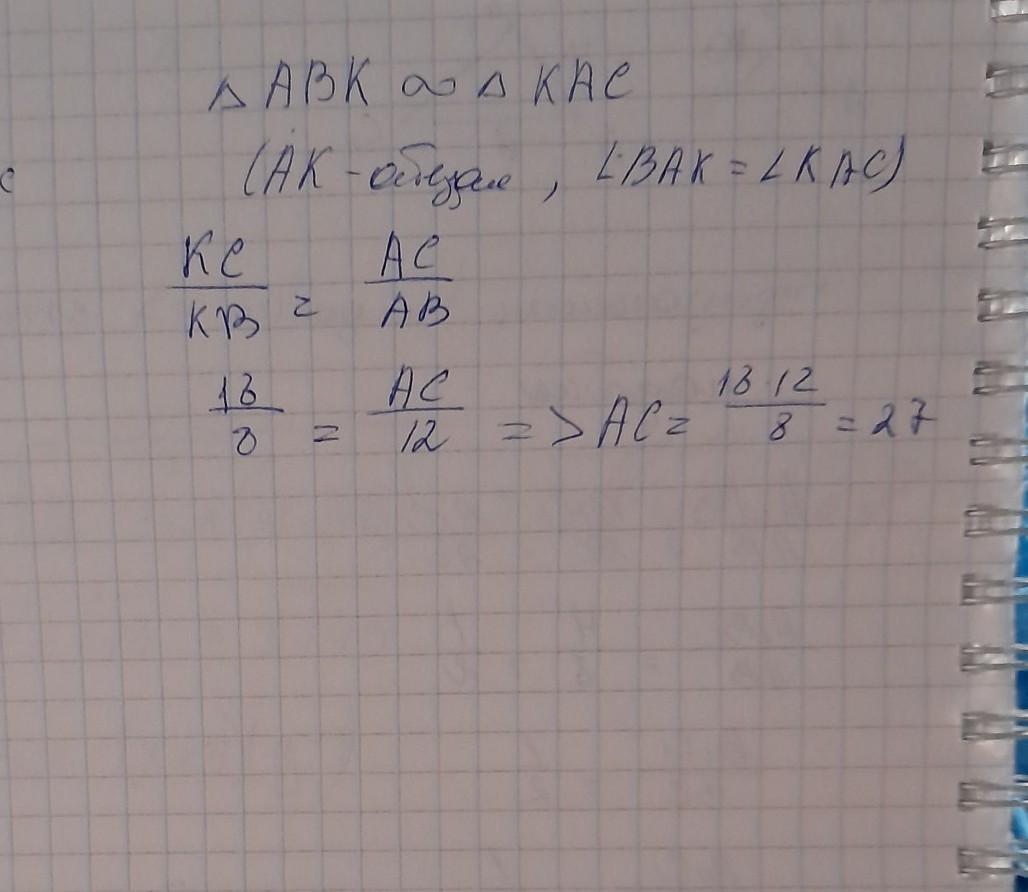 △ ABK ∞ △ KAC
с (AK - общая, ∠BAK = ∠KAC)
KC/KB = AC/AB
18/8 = AC/12 => AC = 18·12/8 = 27